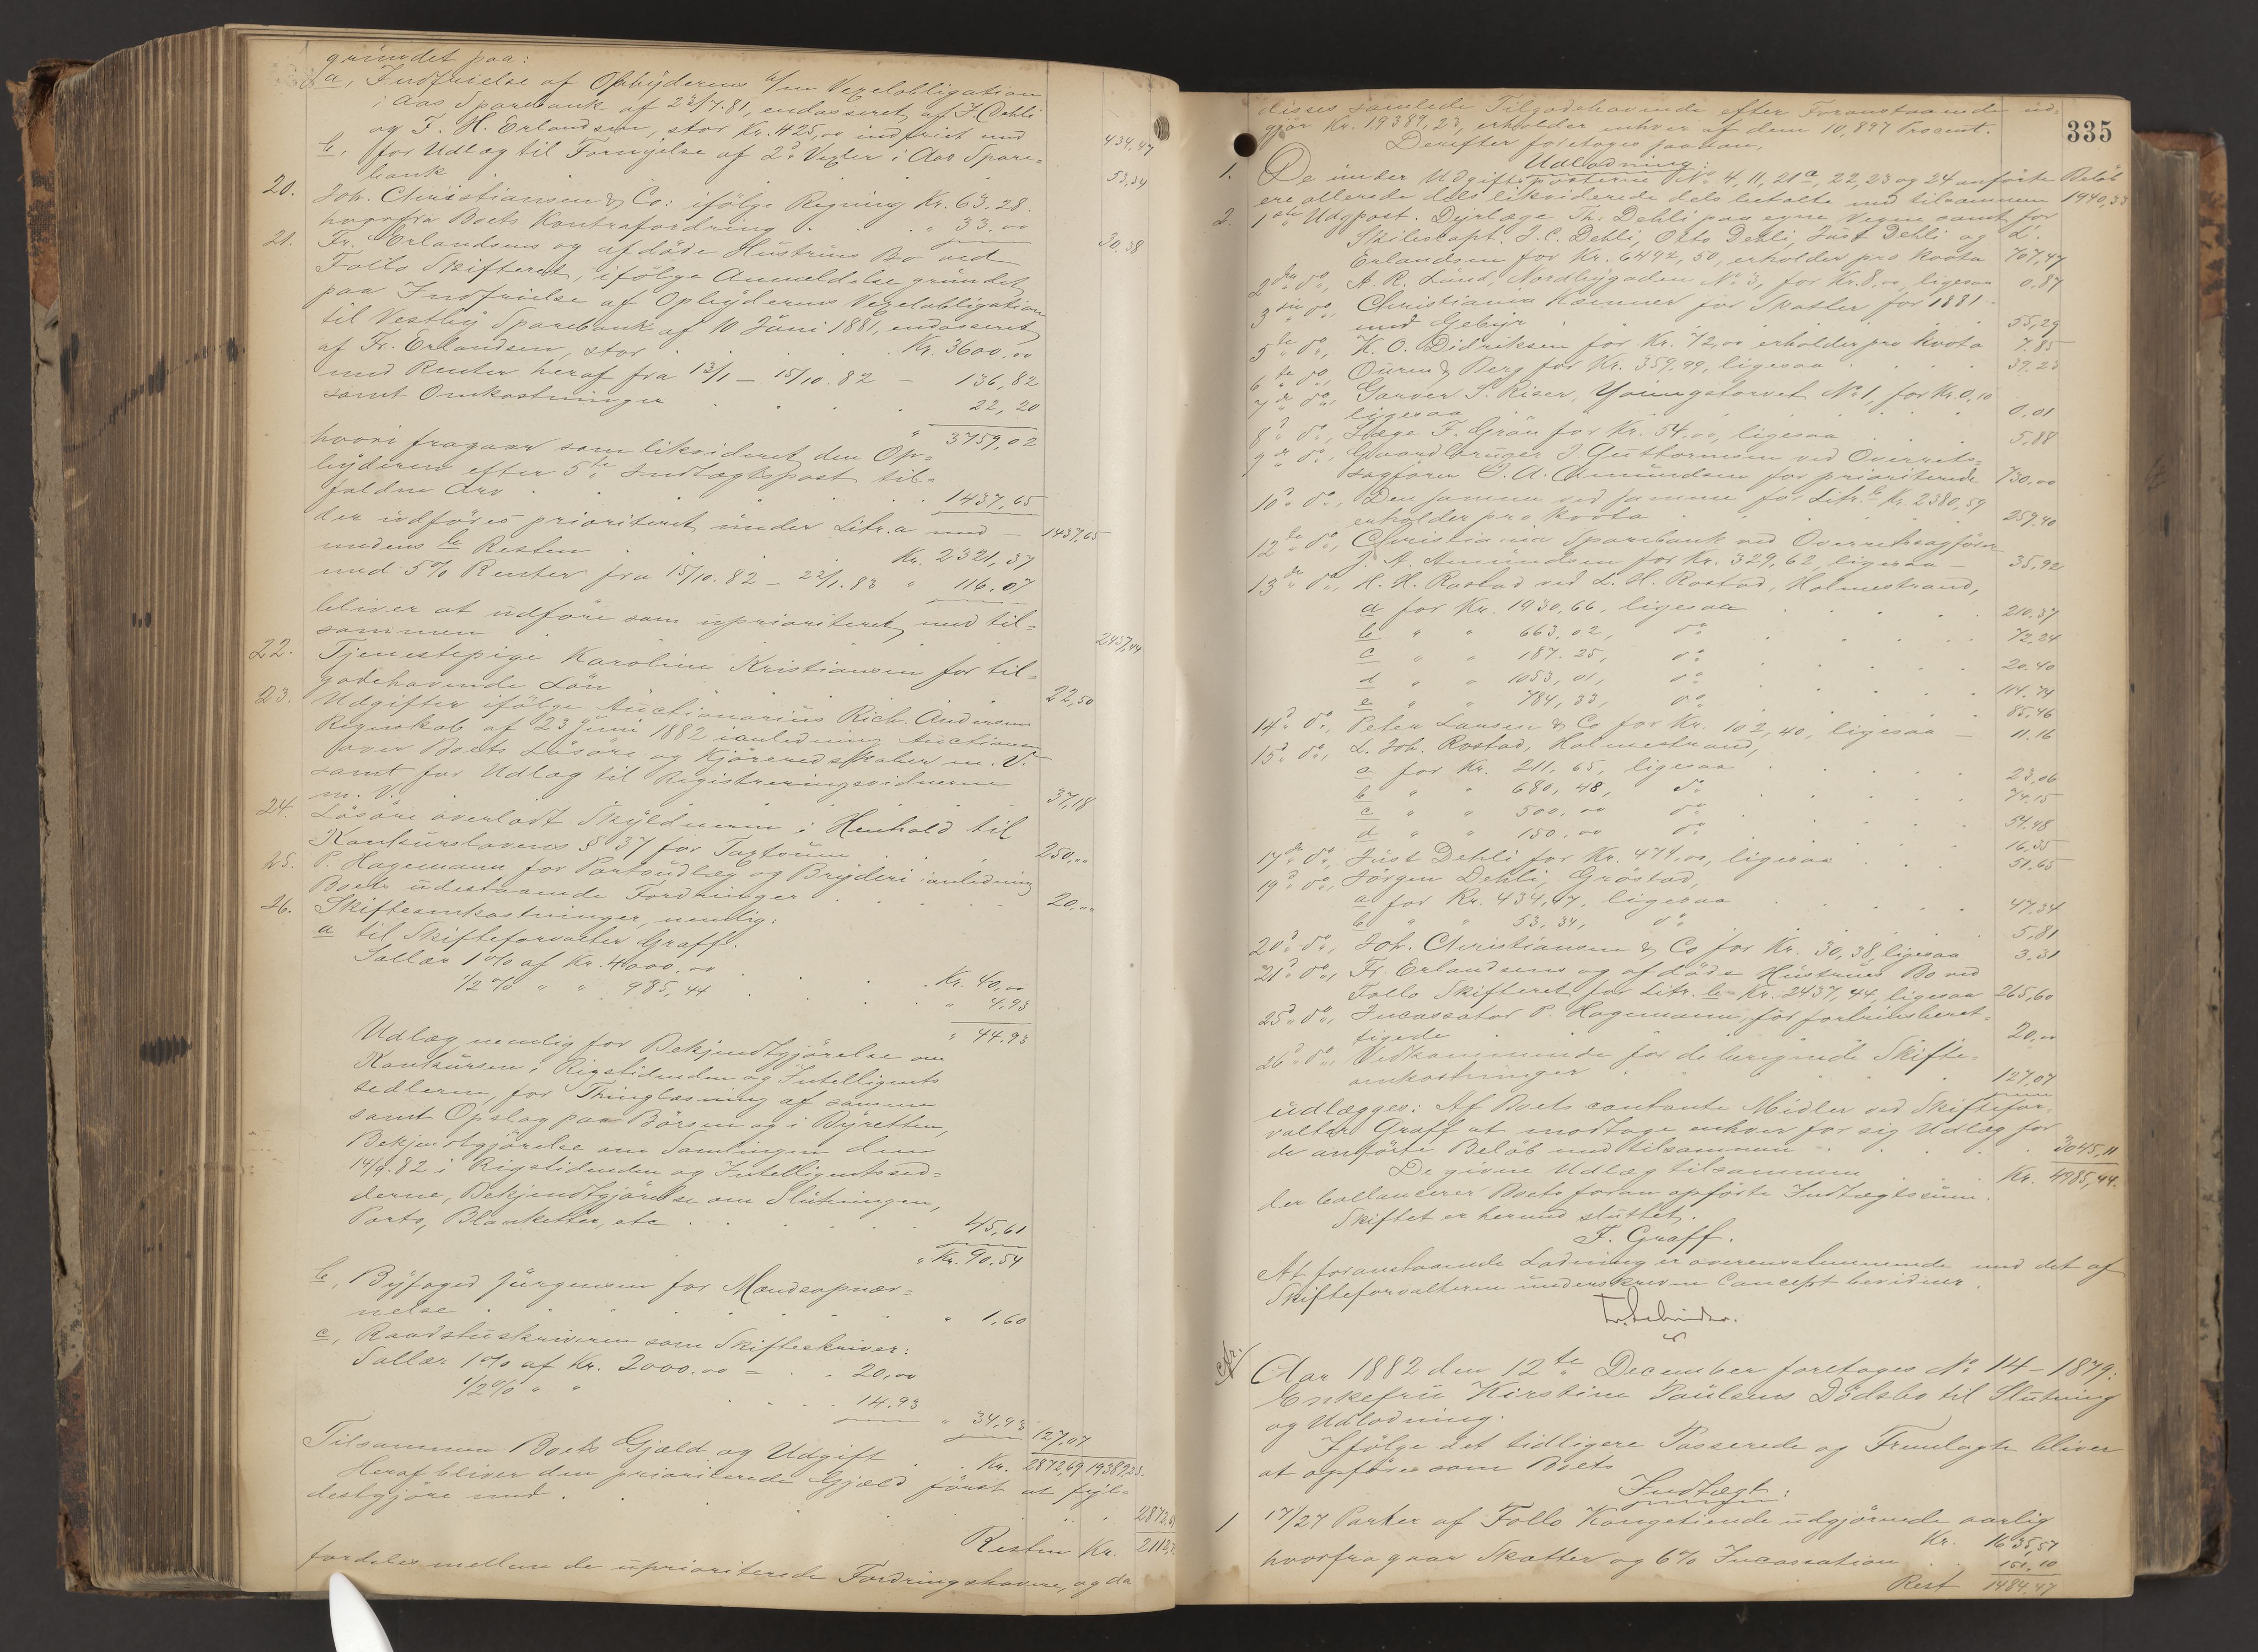 gründet paa:
a, Indfrielse af Opbyderens 6/m Vexelobligation
i Aas Sparebank af 23/7.81, endosseret af J. Dehli
og F. H. Erlandsen, stor Kr. 425,00 indfriet med 434,47
b, for Udlæg til Fornyelse af 2de Vexler i Aas Spare=
bank . . . . . . 53,34
20. Joh. Christiansen & Co: ifölge Regning Kr. 63.28.
hvorfra Boets Kontrafordring . . . " 33.00 30,38
21. Fr. Erlandsens og afdöde Hustrues Bo ved
Follo Skifteret, ifölge Anmeldelse gründet
paa Indfrielse af Opbyderens Vexelobligation
til Vestby Sparebank af 10 Juni 1881, endosseret
af Fr. Erlandsen, stor . . . . Kr. 3600.00
med Renter heraf fra 13/1 – 15/10.82 – 136,82
samt Omkostninger . . . . 22,20
" 3759,02
hvori fragaar som likvideret den Op=
byderen efter 5te Indtægtspost til=
falden Arv . . . . . . 1437,65
der udföres prioriteret ünder Litr. a med – 1437,65
medens b Resten . . . Kr. 2321,37
med 5% Renter fra 15/10.82 – 22/1.83 " 116.07
bliver at udföre som uprioriteret med til=
sammen 2437,44
22. Tjenestepige Karoline Kristiansen for til=
godehavende Lön 22,50
23. Udgifter ifölge Auctionarius Rich. Andersens
Regnskab af 23 Juni 1882 ianledning Auctionen
over Boets Lösöre og Kjöreredskaber m. V.
samt for Udlæg til Registreringsvidnerne
m. V. . . . . . 37,18
24. Lösöre overladt Skyldneren i Henhold til
Konkurslovens § 37 for Taxtsum . . . 250,00
25. P. Hagemann for Portoudlæg og Bryderi ianledning
Boets udestaaende Fordringer . . . . 20,00
26. Skifteomkostninger, nemlig:
a til Skifteforvalter Graff.
Sallær 1% af Kr. 4000.00 . . . Kr. 40,00
1/2% " " 985,44 . . . " 4.93
" 44.93
Udlæg nemlig for Bekjendtgjörelse om
Konkursen i Rigstidenden og Intelligents
sedlerne, for Thinglæsning af samme
samt Opslag paa Börsen og i Byretten,
Bekjendtgjörelse om Samlingen den
14/9.82 i Rigstidenden og Intelligentssed=
lerne, Bekjendtgjörelse om Slutningen,
Porto, Blanketter, etc . . . . . 45,61
" Kr. 90.54
b, Byfoged Jürgensen for Mandsopnæv=
nelse . . . . . . " 1,60
c, Raadstuskriveren som Skifteskriver:
Sallær 1% af Kr. 2000.00 = . . 20,00
1/2% " " . . . . 14.93
" 34,93 127,07
Tilsammen Boets Gjæld og Udgift . . Kr. 2872,69 19389,23.
Heraf bliver den prioriterede Gjæld först at fyl=
destgjöre med . . . . . . 2872,69
Resten Kr. 2112,
fordeles mellem de uprioriterede Fordringshavere, og da
335
disses samlede Tilgodehavende efter Foranstaaende ud=
gjör Kr. 19389,23, erholder enhver af dem 10,897 Procent.
Derefter foretages saadan,
Udlodning:
1. De under Udgiftsposterne No 4, 11, 21a, 22, 23 og 24 anförte Belöb
ere allerede dels likviderede dels betalte med tilsammen 1940,33
2. 1ste Udgpost. Dyrlæge Th. Dehli paa egne Vegne samt for
Skibscapt. J. C. Dehli, Otto Dehli, Just Dehli og L.
Erlandsen for Kr. 6492,50, erholder pro kvota 707,47
2den do, A. R. Lund, Nordbygaden No 3, for Kr. 8,00, ligesaa 0,87
3die do, Christiania Kæmner for Skatter for 1881
med Gebyr . . . . . 55,29
5te do, K. O. Didriksen for Kr. 72,00 erholder pro kvota 7.85
6te do, Ouren & Berg for Kr. 359,99, ligesaa . . . 39.23
7de do, Garver S. Riser, Youngstorvet No 1, for Kr. 0,10
ligesaa . . . . . 0,01
8de do, Læge F. Grön for Kr. 54.00, ligesaa . . . 5,88
9de do, Gaardbruger J Guttormsen ved Overrets=
sagförer J. A. Amundsen for prioriterede 730,00
10de do, Den samme ved samme for Litr. b Kr. 2380,59
erholder pro kvota . . . . . 259.40
12te do, Christiania Sparebank ved Overretssagförer
J. A. Amundsen for Kr. 329,62, ligesaa – 35,92
13de do, H. H. Rostad ved L. H. Rostad, Holmestrand,
a for Kr. 1930,66, ligesaa . . . . 210,37
b " " 663.02, do . . . . 72,24
c " " 187.25, do . . . . 20.40
d " " 1053,01, do . . . . 114.74
e " " 784,33, do . . . . 85,46
14de do, Peter Larsen & Co for Kr. 102,40, ligesaa – 11.16
15de do, L. Joh. Rostad, Holmestrand,
a for Kr. 211,65, ligesaa . . . . 23,06
b " " 680,48, do . . . . 74.15
c " " 500,00 do . . . . 54,48
d " " 150,00 do . . . . 16,35
17de do, Just Dehli for Kr. 474,00, ligesaa . . . 51.65
19de do, Jörgen Dehli, Gröstad,
a for Kr. 434,47, ligesaa . . . . 47.34
b " " 53,34, do . . . . 5,81
20de do, Joh. Christiansen & Co for Kr. 30,38, ligesaa 3.31
21de do, Fr. Erlandsens og afdöde Hustrues Bo ved
Follo Skifteret for Litr. b Kr. 2437,44, ligesaa 265,60
25de do, Incassator P. Hagemann, for fortrinsberet=
tigede . . . . . 20,00
26de do, Vedkommende for de beregnede Skifte=
omkostninger . . . . . 127,07
udlægges: Af Boets contante Midler ved Skiftefor=
valter Graff at modtage enhver for sig Udlæg for
de anförte Belöb med tilsammen . . . 3045,11
De givne Udlæg tilsammen . . Kr. 4985,44.
der ballancerer Boets foran opförte Indtægtssum.
Skiftet er hermed sluttet.
F. Graff.
At foranstaaende Lodning er overensstemmende med det af
Skifteforvalteren underskrevne Concept bevidner.
Aar 1882 den 12te December foretages No 14 – 1879:
Enkefru Kirstine Paulsens Dödsbo til Slutning
og Udlodning.
Ifölge det tidligere Passerede og Fremlagte bliver
at opföre som Boets
Indtægt:
1 17/27 Parter af Follo Kongetiende udgjörende aarlig
Kr. 1635,57
hvorfra gaar Skatter og 6% Incassation . . 151,10
Rest 1484,47